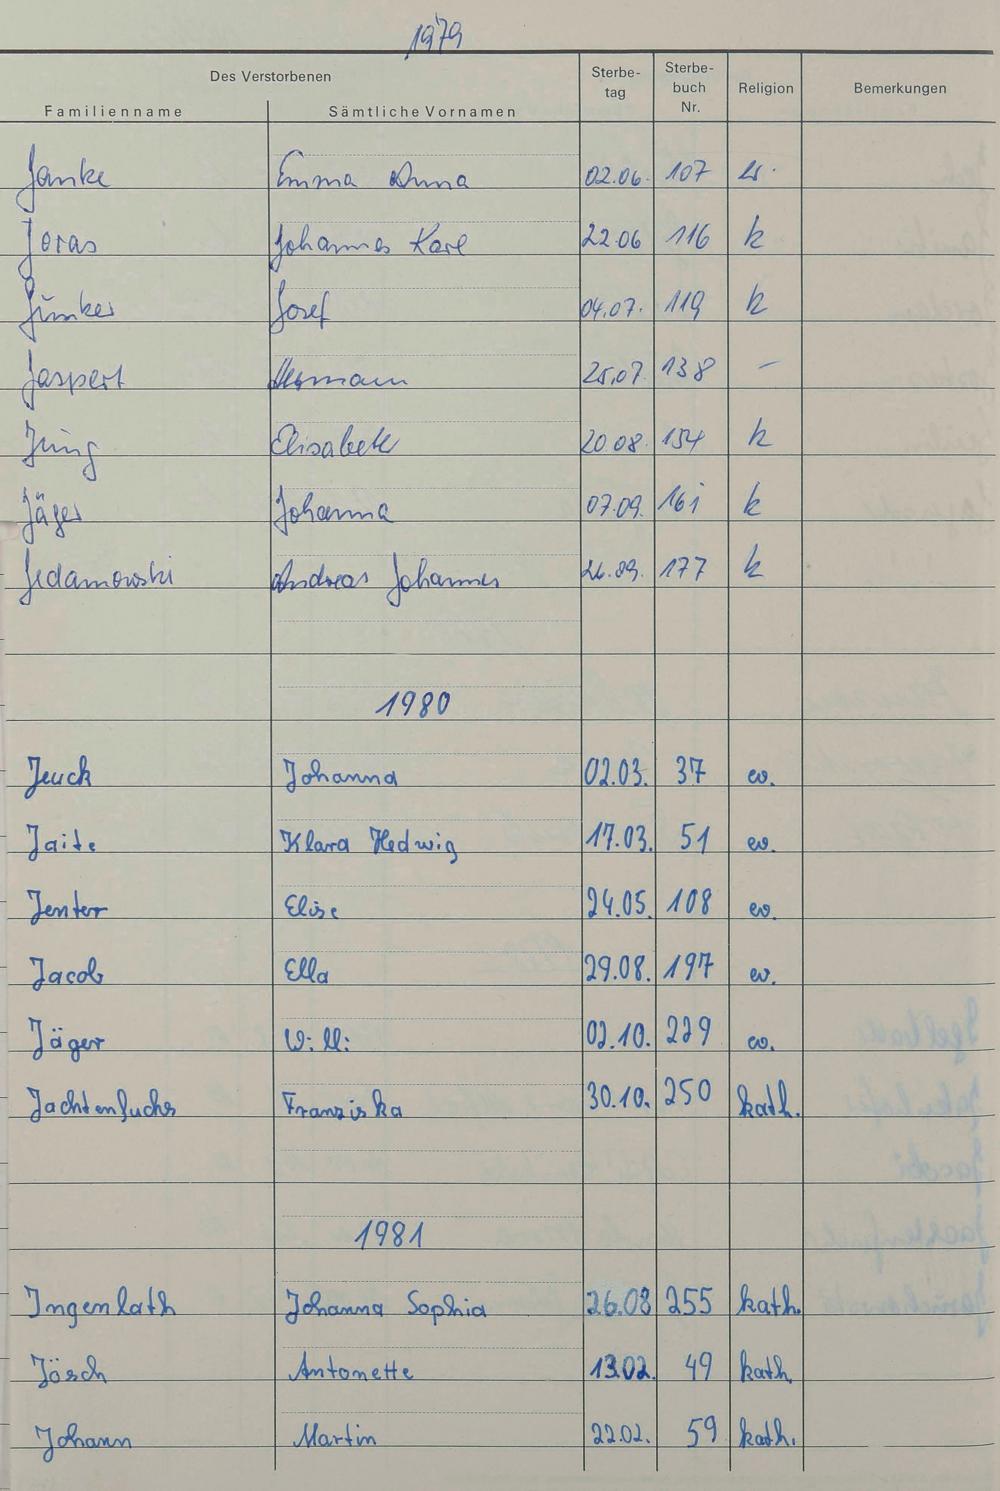 1979
Des Verstorbenen
Familienname Sämtliche Vornamen Sterbe-tag Sterbe-buch Nr. Religion Bemerkungen
Janke Emma Anna 02.06. 107 ev.
Joras Johannes Karl 22.06 116 k
Junker Josef 04.07. 119 k
Jaspert Hermann 25.07. 138 –
Jung Elisabeth 20.08. 154 k
Jäger Johanna 07.09. 161 k
Jedamowski Andreas Johannes 26.09. 177 k
1980
Jeuck Johanna 02.03. 37 ev.
Jaite Klara Hedwig 17.03. 51 ev.
Jenter Elise 24.05. 108 ev.
Jacob Ella 29.08. 197 ev.
Jäger Willi 02.10. 229 ev.
Jachtenfuchs Franziska 30.10. 250 kath.
1981
Ingenlath Johanna Sophia 26.08 255 kath.
Jösch Antonette 13.02. 49 kath.
Johann Martin 22.02. 59 kath.